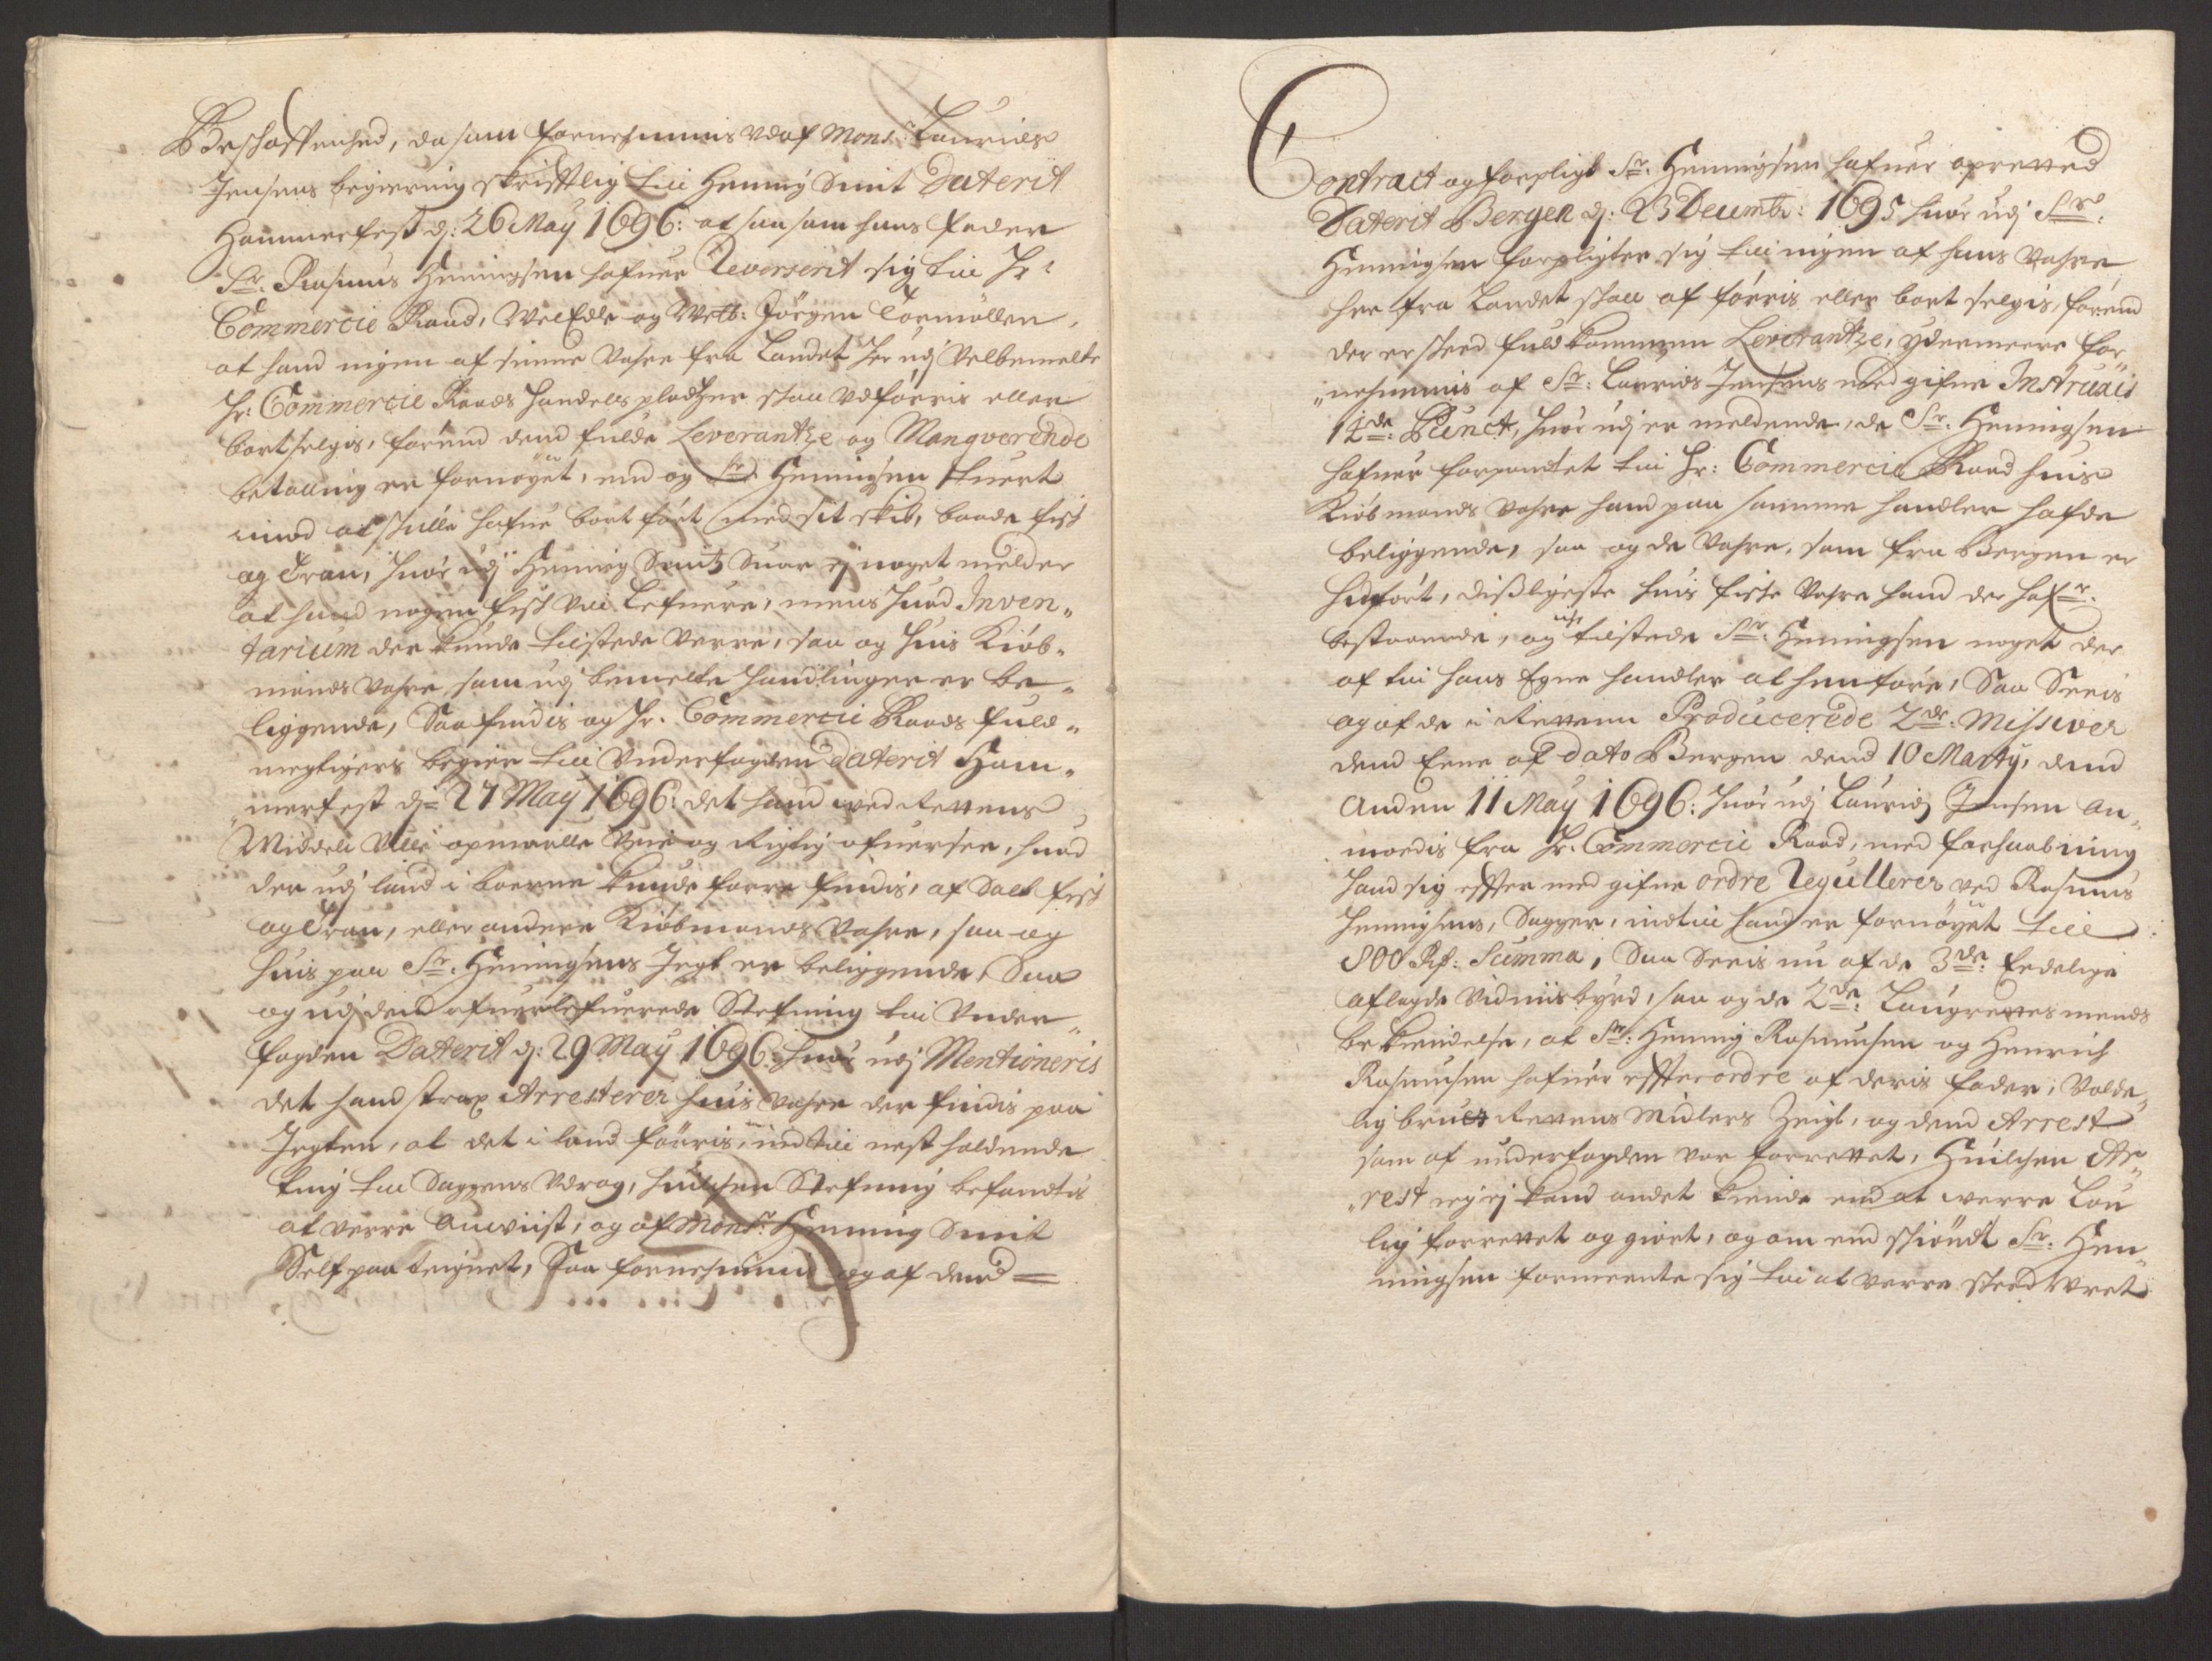 Beschaffenhed, da som fornemmis Vdaf Mons:r Laurids
Jensens begiering skrifftlig till Henning Smit Daterit
Hammerfest d: 26 May 1696: at saasom hans fader
Sr. Rasmus Henningsen hafuer Reverserit sig till Hr:
Commercie Raad, WelEdle og Welb: Jörgen Tormöllen,
at hand ingen af sinne Vahre fra Landet her udj Velbemelte
Hr: Commercie Raads Handels pladtzer skall Vdförris eller
bortselgis, förend dend fulde Leverantze og Manqverende
betalling er fornöyet, end og Sr. Henningsen tuert
imod at skulle hafue bort fört med sit skib, baade fisk
og Tran, huor udj Henning Smitz Suar ej noget melder
at hand nogen fisk Vil Lefuere, mens huad Inven„
tarium der kunde tilstede Verre, saa og huis Kiöb„
mands Vahre som udj bemelte handlinger er be„
liggende, Saa findis og Hr. Commercie Raads fuld„
megtigers begier till Underfogden Daterit Ham„
„merfest d: 27 May 1696: det hand wed Rettens
Middel Ville opmaalle Veie og Rigtig ofuersee, huad
der udj land i boerne kunde forre findis, af Salt fisk
og Tran, eller andere Kiöbmands Vahre, saa og
huis paa Sr. Henningsens Jegt er beliggende, Saa
og udj dend ofuerlefuerede Stefning till Vnder„
fogden Daterit d: 29 May 1696: huor udj Mentioneris
det hand strax Arresterer huis Vahre der findis paa
Jegten, at det i land förris, indtill nest holdende
ting till Saggens Vdrag, huilchen Stefning befandtis
at verre Anviist, og af Mons:r Henning Smit
Self paa teignet, Saa fornemmis og af dend =
Contract og forpligt Sr. Henningsen hafuer opretted
Daterit Bergen d: 23 Decembr: 1695 huor udj Sr:
Henningsen forpligter sig till ingen af hans Vahre
her fra Landet skall af förris eller bort selgis, förend
der er skeed fuldkommen Leverantze, ydermeere for„
„nemmis af Sr: Laurids Jensens med gifne Instruxis
12de: Punct, huor udj er meldende, da Sr. Henningsen
hafuer forpandtet till Hr: Commercie Raad huis
Kiöbmands Vahre hand paa samme handler hafde
beliggende, saa og de Vahre, som fra Bergen er
hidfört, dissligeste huis fiske Vahre hand der hafr.
bestaaende, og iche tilstede Sr. Henningsen noget der
af till hans Egne handler at henföre, Saa Seeis
og af de i Retten Producerede 2de. Missiver
dend Eene af dato Bergen dend 10 Marty, dend
Anden 11 May 1696: huor udj Lauridz Jensen An„
moedis fra Hr. Commercie Raad, med forhaabning
hand sig effter med gifne ordre Regullerer ved Rasmus
Henningsens, Sagger, indtill hand er fornöyet till
800 Rd: Summa, Saa Seeis nu af de 3de: Eedelige
aflagde Vidnisbyrd, saa og de 2de: Laugrettesmends
bekiendelse, at Sr: Henning Rasmusen og Henrich
Rasmusen hafuer effter ordre af deris fader, Volde„
lig brudt Rettens Midlers Zeigl, og dend Arrest
som af underfogden var forrettet, Huilchen Ar„
„rest ieg ej kand andet kiende end at werre Lou
lig forrettet og giort, og om end skiöndt Sr. Hen„
ningsen formeente sig till at verre skeed Vret